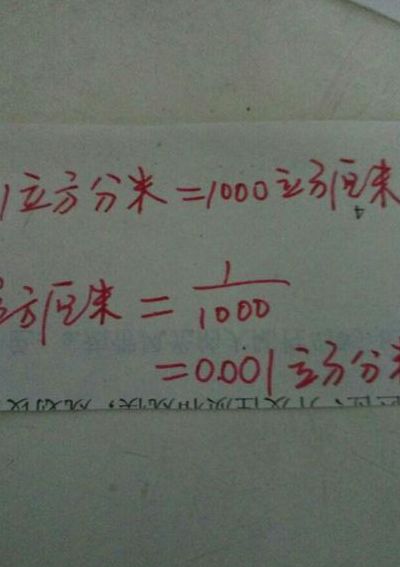 1立方分米=1000立方厘米
方厘米=1/1000
=0.001立方分